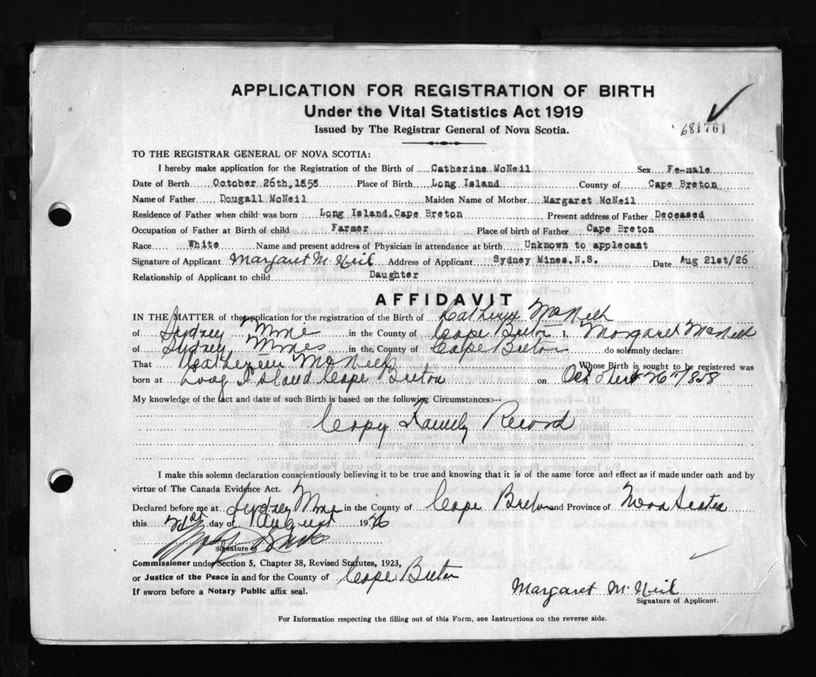 APPLICATION FOR REGISTRATION OF BIRTH
Under the Vital Statistics Act 1919
Issued by The Registrar General of Nova Scotia.
681761
TO THE REGISTRAR GENERAL OF NOVA SCOTIA:
I hereby make application for the Registration of the Birth of Catherine McNeil Sex Fe-male
Date of Birth October 26th, 1858 Place of Birth Long Island County of Cape Breton
Name of Father Dougall McNeil Maiden Name of Mother Margaret McNeil
Residence of Father when child was born Long Island, Cape Breton Present address of Father Deceased
Occupation of Father at Birth of child Farmer Place of birth of Father Cape Breton
Race White Name and present address of Physician in attendance at birth Unknown to applecant
Signature of Applicant Margaret McNeil Address of Applicant Sydney Mines, N.S. Date Aug 21st/26
Relationship of Applicant to child Daughter
AFFIDAVIT
IN THE MATTER of the application for the registration of the Birth of McNeil
of Sydney Mine in the County of Cape Breton I, Margaret McNeil
of Sydney Mines in the County of Cape Breton do solemnly declare:
That McNeil Whose Birth is sought to be registered was
born at Long Island Cape Breton on 26 1858
My knowledge of the fact and date of such Birth is based on the following Circumstances:--
Copy Family Record
I make this solemn declaration conscientiously believing it to be true and knowing that it is of the same force and effect as if made under oath and by
virtue of The Canada Evidence Act.
Declared before me at Sydney in the County of Cape Breton and Province of Nova Scotia
this 21st day of August 1926
Signature of
Commissioner under Section 5, Chapter 38, Revised Statutes, 1923,
or Justice of the Peace in and for the County of Cape Breton
If sworn before a Notary Public affix seal.
Margaret McNeil
Signature of Applicant.
For Information respecting the filling out of this Form, see Instructions on the reverse side.